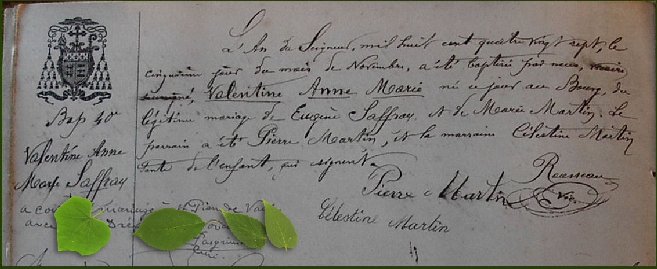 L'An du Seigneur, mil huit cent quatre vingt sept, le
cinquième jour du mois de Novembre, a été baptisée par nous,
Valentine Anne Marie né ce jour au Bourg, du
légitime mariage de Eugène Saffray, et de Marie Martin. Le
parrain a été Pierre Martin, et la marraine Célestine Martin
tante de l'enfant, qui signent
Bap 40e
Valentine Anne
Marie Saffray
a mariage
avec
Rousseau
Vic.
Pierre Martin
Célestine Martin